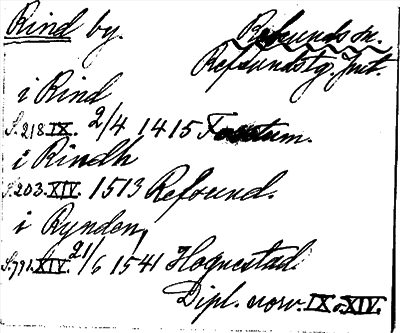 Rind by. Refsunds sn.
Refsundstg. Jmt.
i Rind
S. 218 IX. 2/4 1415
i Rindh
S. 203. XIV. 1513 Refsund.
i Rynden,
S. 791. XIV. 21/6 1541 Hognestad.
Dipl. norv. IX o. XIV.